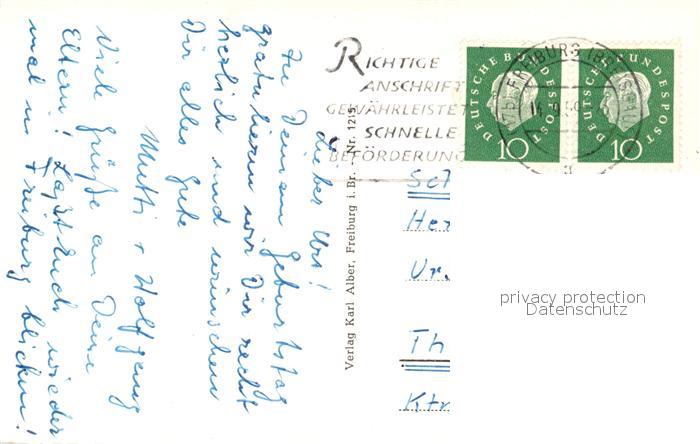 Lieber Urs!
Zu Deinem Geburtstag
gratulieren wir Dir recht
herzlich und wünschen
Dir alles Gute
Mutti + Wolfgang
Viele Grüße an Deine
Eltern! Laßt Euch wieder
mal in Freiburg blicken!
Verlag Karl Alber, Freiburg i. Br. - Nr. 1215
RICHTIGE
ANSCHRIFT
GEWÄHRLEISTET
SCHNELLE
BEFÖRDERUNG
FREIBURG
DEUTSCHE BUNDESPOST
10
DEUTSCHE BUNDESPOST
10
Sch
Her
Ur.
Th
Ktn
privacy protection
Datenschutz